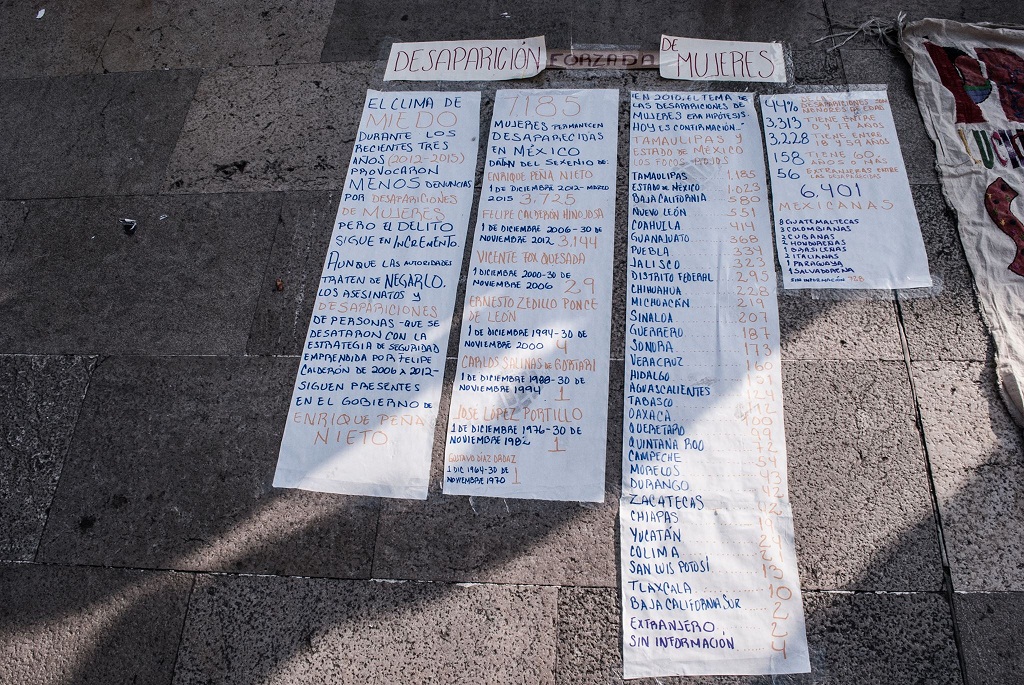 DESAPARICIÓN FORZADA DE MUJERES
EL CLIMA DE
MIEDO
DURANTE LOS
RECIENTES TRES
AÑOS (2012-2015)
PROVOCARON
MENOS DENUNCIAS
POR DESAPARICIONES
DE MUJERES
PERO EL DELITO
SIGUE EN INCREMENTO.
AUNQUE LAS AUTORIDADES
TRATEN DE NEGARLO,
LOS ASESINATOS Y
DESAPARICIONES
DE PERSONAS -QUE SE
DESATARON CON LA
ESTRATEGIA DE SEGURIDAD
EMPRENDIDA POR FELIPE
CALDERÓN DE 2006 A 2012-
SIGUEN PRESENTES
EN EL GOBIERNO DE
ENRIQUE PEÑA
NIETO
7185
MUJERES PERMANECEN
DESAPARECIDAS
EN MÉXICO
DATAN DEL SEXENIO DE:
ENRIQUE PEÑA NIETO
1 DE DICIEMBRE 2012-MARZO
2015 3,725
FELIPE CALDERÓN HINOJOSA
1 DE DICIEMBRE 2006-30 DE
NOVIEMBRE 2012 3,144
VICENTE FOX QUESADA
1 DICIEMBRE 2000-30 DE
NOVIEMBRE 2006 29
ERNESTO ZEDILLO PONCE
DE LEÓN
1 DE DICIEMBRE 1994-30 DE
NOVIEMBRE 2000 4
CARLOS SALINAS DE GORTARI
1 DE DICIEMBRE 1988-30 DE
NOVIEMBRE 1994 1
JOSE LÓPEZ PORTILLO
1 DE DICIEMBRE 1976-30 DE
NOVIEMBRE 1982 1
GUSTAVO DÍAZ ORDAZ
1 DIC 1964-30 DE
NOVIEMBRE 1970 1
EN 2010, EL TEMA DE
LAS DESAPARICIONES DE
MUJERES ERA HIPÓTESIS.
HOY ES CONFIRMACIÓN
TAMAULIPAS Y
ESTADO DE MÉXICO
LOS FOCOS ROJOS
TAMAULIPAS 1,185
ESTADO DE MÉXICO 1,023
BAJA CALIFORNIA 580
NUEVO LEÓN 551
COAHUILA 414
GUANAJUATO 368
PUEBLA 339
JALISCO 323
DISTRITO FEDERAL 295
CHIHUAHUA 228
MICHOACÁN 219
SINALOA 207
GUERRERO 187
SONORA 173
VERACRUZ 160
HIDALGO
AGUASCALIENTES 124
TABASCO
OAXACA 100
QUERÉTARO
QUINTANA ROO
CAMPECHE
MORELOS
DURANGO
ZACATECAS
CHIAPAS
YUCATÁN
COLIMA
SAN LUIS POTOSÍ 13
TLAXCALA 10
BAJA CALIFORNIA SUR 2
EXTRANJERO 2
SIN INFORMACIÓN 4
44% DESAPARICIONES SON
MENORES DE EDAD
3,313 TIENE ENTRE
0 Y 17 AÑOS
3,228 TIENE ENTRE
18 Y 59 AÑOS
158 TIENE 60
AÑOS O MÁS
56 EXTRANJERAS ENTRE
LAS DESAPARECIDAS
6,401
MEXICANAS
GUATEMALTECAS
COLOMBIANAS
CUBANAS
HONDUREÑAS
BRASILEÑAS
2 ITALIANAS
1 PARAGUAYA
1 SALVADOREÑA
SIN INFORMACIÓN 728